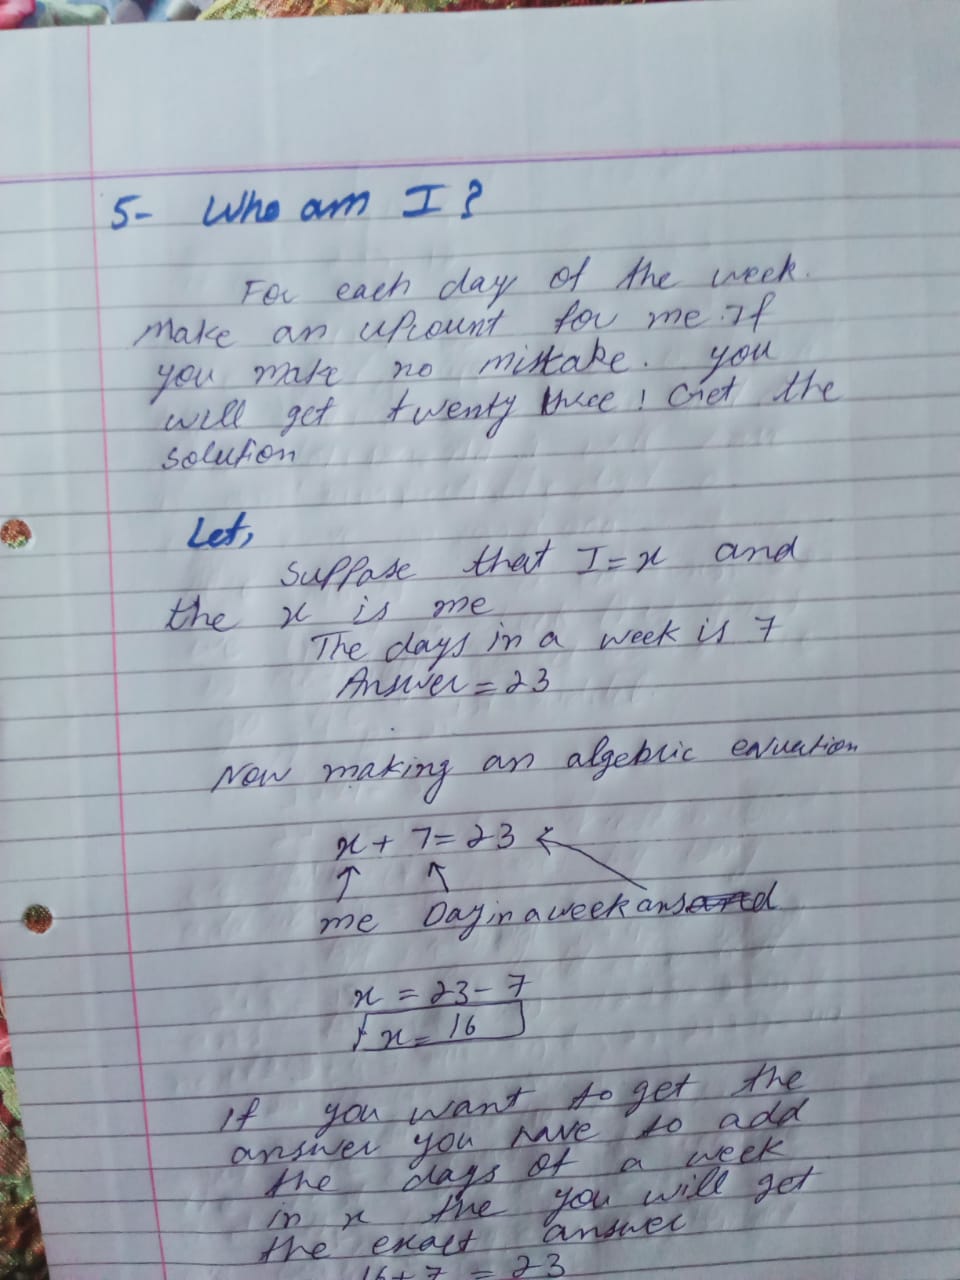 5- Who am I?
For each day of the week.
Make an upcount for me. If
you make no mistake. you
will get twenty three! Get the
solution
Let,
Suppase that I=x and
the x is me
The days in a week is 7
Answer = 23
Now making an algebric equation
x + 7 = 23
me Day in a week ans
x = 23 - 7
x = 16
If you want to get the
answer you have to add
the days of a week
in x the you will get
the exact answer
16 + 7 = 23